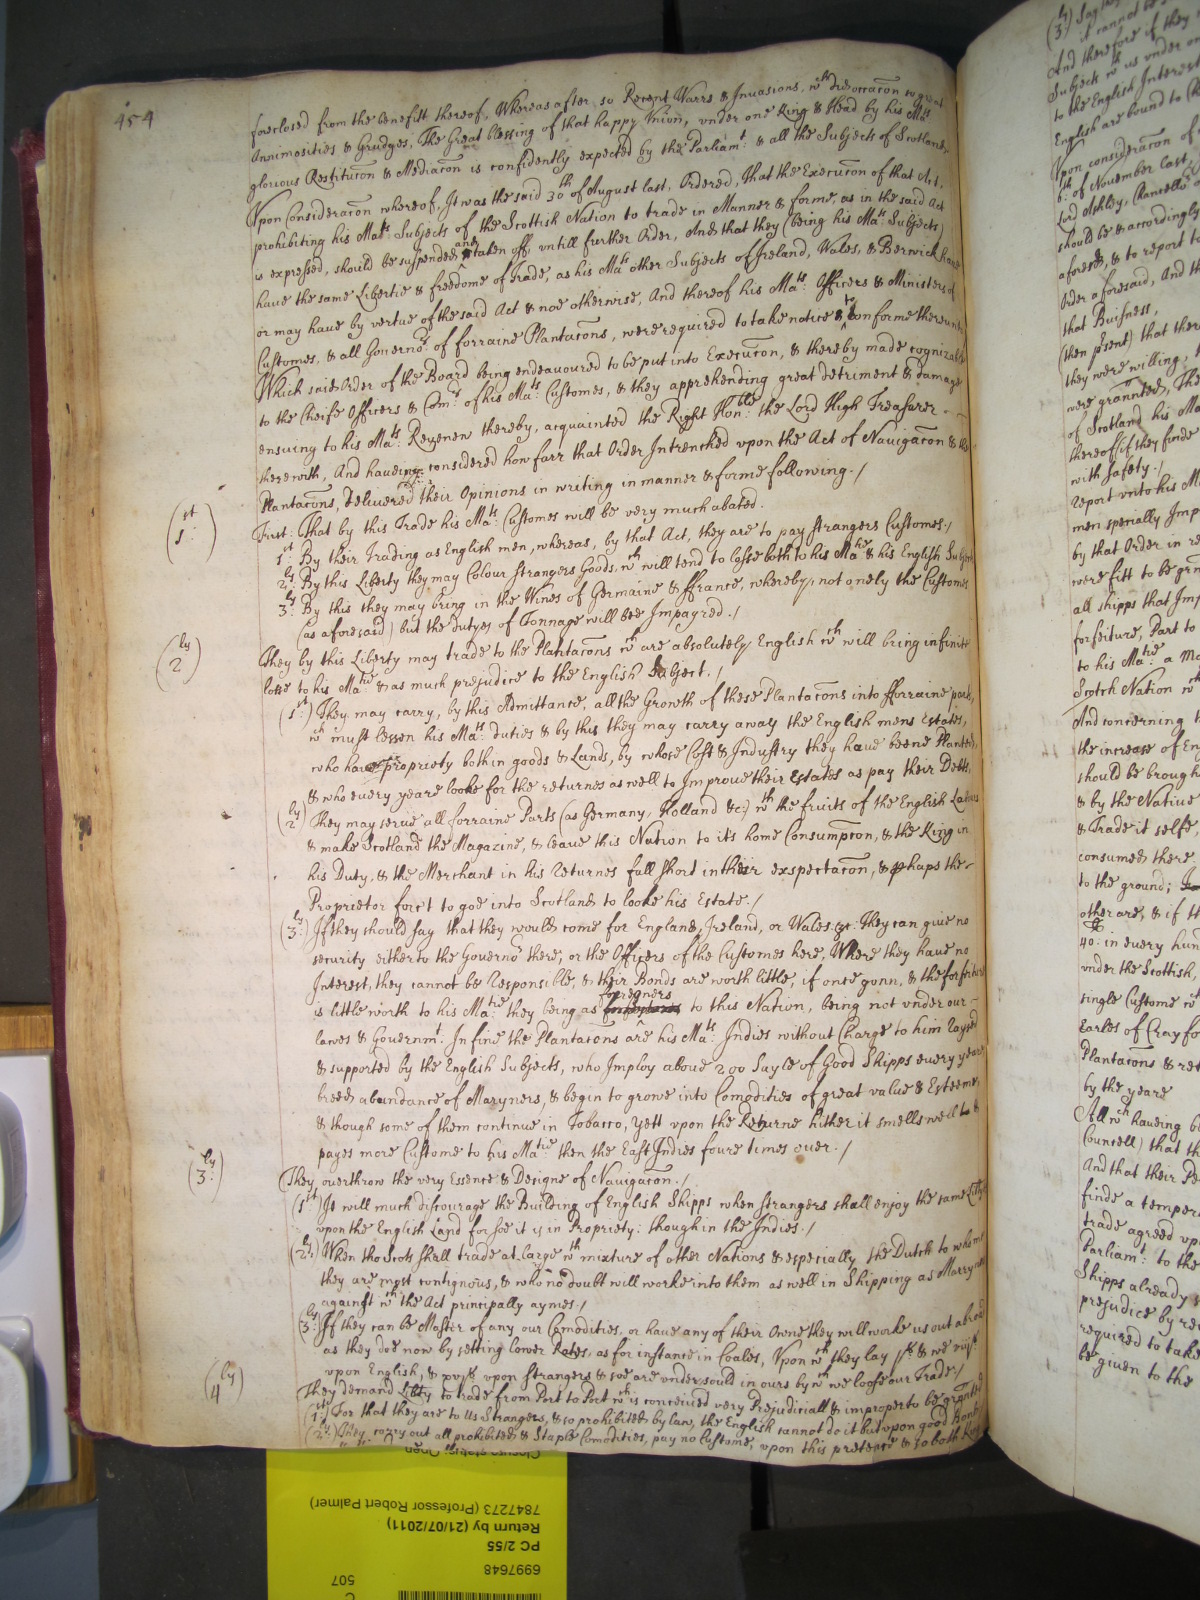 454
foreclosed from the benefitt thereof, Whereas after, so Recent Warrs & Invasions, wch did occacon so great
Annimosities & Grudges, The Great blessing of that happy Vnion, vnder one King & Head by his Mats
glorious Restitucon & Mediacon is confidently expected by the Parliamt: & all the Subjects of Scotland
Vpon Consideracon whereof, It was the said 30th of August last, Ordered, That the Execucon of that Act,
prohibiting his Mats Subjects of the Scottish Nation to trade in Manner & forme, as in the said Act
is expressed, should be suspended and taken off vntill further Order, And that they (being his Mats Subjects)
have the same Libertie & freedome of Trade, as his Mats other Subjects of Ireland, Wales, & Berwick have
or may haue by vertue of the said Act & noe otherwise, And thereof his Mats: Officers & Ministers of
Customes, & all Governors of forraine Plantacons, were required to take notice & to conforme thereunto
Which said Order of the Board being endeavoured to be put into Execucon, & thereby made cognizable
to the Cheife Officers & Comrs of his Mats: Customes, & they apprehending great detriment & damage
ensuing to his Mats: Revenew thereby, acquainted the Right Honble: the Lord High Treasurer
therewith, And haveing considered how farr that Order Intrenched vpon the Act of Navigacon &
Plantacons, delivered their Opinions in writing in manner & forme following. /
(1st:)
First: That by this Trade his Mats: Customes will be very much abated.
1st: By their Trading as English men, whereas, by that Act, they are to pay strangers Customes. /
2ly: By this Liberty they may Colour strangers Goods, wch will tend to losse both to his Matie & his English Subjects
3ly: By this they may bring in the Wines of Germaine & ffrance, whereby, not onely the Customes
(as aforesaid) but the dutyes of Tonnage will bee Impayred. /
(2ly)
They by this Liberty may trade to the Plantacons wch are absolutely English wch will bring infinite
losse to his Matie: & as much prejudice to the English Subject. /
(1st:) They may carry, by this Admittance, all the Growth of these Plantacons into fforraine parts,
wch must lessen his Mats: duties & by this they may carry away the English mens Estates,
who have propriety both in goods & Lands, by whose Cost & Industry they haue beene Planted,
& who every yeare looke for the returnes as well to Improve their Estates as pay their Debts,
(2ly) They may serve all forraine Parts (as Germany, Holland &c:) wth the fruits of the English Labours
& make Scotland the Magazine, & leave this Nation to its home Consumpcon, & the King in
his Duty, & the Merchant in his Returnes fall short in their exspectacon, & phaps the
Proprietor forc't to goe into Scotland to looke his Estate. /
(3ly:) If they should say that they would come for England, Ireland, or Wales &c: They can give no
security either to the Governor there, or the Officers of the Customes here, Where they haue no
Interest, they cannot be Responsible, & their Bonds are worth little, if once gonn, & the forfeiture
is little worth to his Matie: they being as foreigners to this Nation, being not vnder our
lawes & Governmt: In fine the Plantacons are his Mats: Indies without Charge to him raysed
& supported by the English Subjects, who Imploy above 200 Sayle of Good Shipps every yeare,
breed abundance of Maryners, & begin to growe into Comodities of great value & Esteeme,
& though some of them continue in Tobacco, yett vpon the Returne hither it smells well &
payes more Custome to his Matie then the East Indies foure times over. /
(3ly:)
They overthrow the very Essence & Designe of Navigacon. /
(1st) It will much discourage the Building of English Shipps when strangers shall enjoy the same Libty
vpon the English Land for soe it is in Propriety: though in the Indies. /
(2ly:) When the Scots shall trade at large wth mixture of other Nations & especially the Dutch to whome
they are most contiguous, & who no doubt will worke into them as well in Shipping as Marryners
against wch the Act principally aymes. /
(3ly:) If they can be Master of any our Comodities, or haue any of their Owne they will worke us out abroad
as they doe now by setting lower Rates, as for instance in Coales, Vpon wch they lay & we
vpon English, & vpon strangers & soe are vndersould in ours by wch we loose our Trade /
(4ly)
They demand Libty to trade from Port to Port wch is conceived very Prejudiciall & improper to be granted
(1st:) For that they are to Us Strangers, & so prohibited by law, the English cannot do it but vpon good Bonds
(2ly:) They carry out all prohibited & Staple Comodities, pay no Custome, vpon this pretence & so both King
(3ly:) Say
it cannot be
And therefore if they
Subjects wth us vnder
to the English Interest
English are bound to
Vpon consideracon of
6th: of November last,
Lord Ashley,
should be & accordingly
aforesd, & to report
Order aforesaid, And
that Buisness,
(then psent) that
they were willing,
were grannted, The
of Scotland his
thereof (if they finde
with safety. /
Report vnto his
men specially
by that Order in
were fitt to be
all shipps that
forfeiture, Part to
to his Matie: a
Scotch Nation
And concerning
the increase of
should be brough
& by the Native
& Trade it selfe,
consumed there
to the ground;
other are, & if
40: in every
vnder the Scottish,
single Custome
Earles of
Plantacons &
by the yeare
All wch having
Councell) that
And that their
finde a temper
trade agreed
Parliamt: to the
Shipps already
prejudice by
required to take
be given to the
Closure status: Open
7847273 (Professor Robert Palmer)
Return by (21/07/2011)
PC 2/55
6997648
507